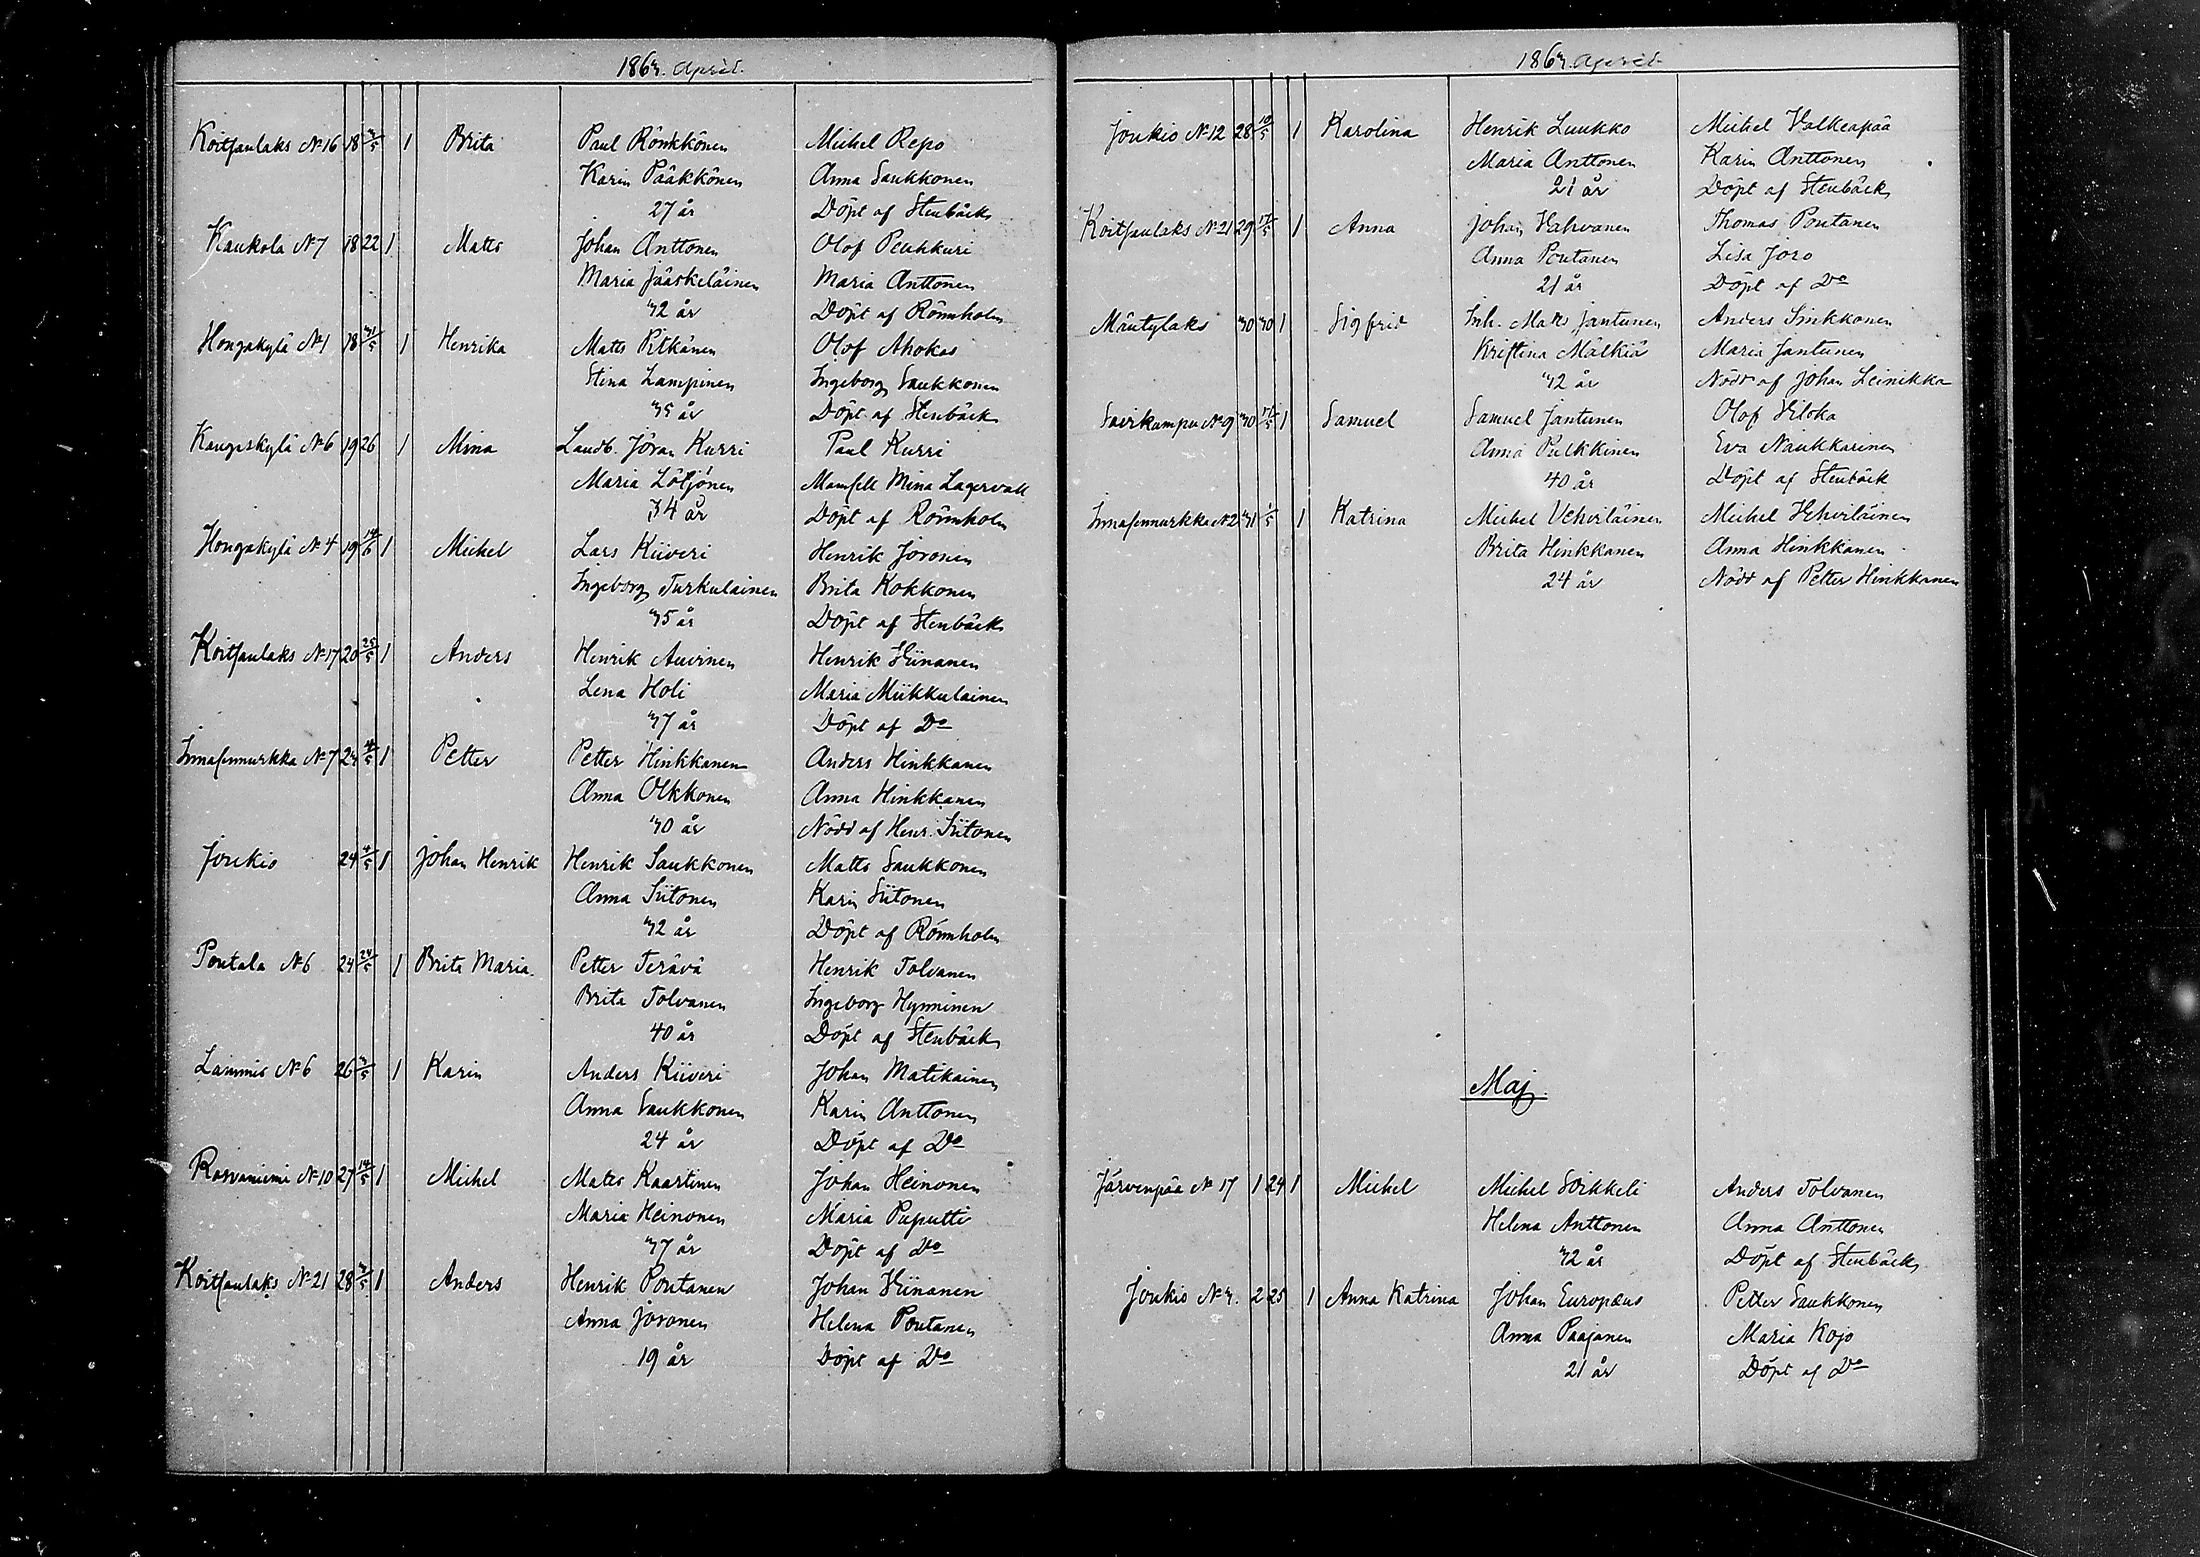 1863. April.
Koitsanlaks No 16 18 3/5 1 Brita Paul Rönkkönen Michel Repo
Karin Pääkkönen Anna Saukkonen
27 år Döpt af Stenbäck
Kaukola No 7 18 22 1 Matts Johan Anttonen Olof Peuhkuri
Maria Jääskeläinen Maria Anttonen
32 år Döpt af Rönnholm
Hongakylä No 1 18 31/5 1 Henrika Matts Pitkänen Olof Ahokas
Stina Lampinen Ingeborg Saukkonen
35 år Döpt af Stenbäck
Kangaskylä No 6 19 26 1 Mina Landb. Jöran Kurri Paul Kurri
Maria Lötjönen Mamsell Mina Lagervall
34 år Döpt af Rönnholm
Hongakylä No 4 19 14/6 1 Michel Lars Kiiveri Henrik Joronen
Ingeborg Turkulainen Brita Kokkonen
35 år Döpt af Stenbäck
Koitsanlaks No 17 20 25/5 1 Anders Henrik Auvinen Henrik Viinanen
Lena Holi Maria Miikkulainen
37 år Döpt af Do
Inmasennurkka No 7 24 4/5 1 Petter Petter Hinkkanen Anders Hinkkanen
Anna Olkkonen Anna Hinkkanen
30 år Nödd af Henr. Siitonen
Joukio 24 4/5 1 Johan Henrik Henrik Saukkonen Matts Saukkonen
Anna Siitonen Karin Siitonen
32 år Döpt af Rönnholm
Poutala No 6 24 24/5 1 Brita Maria Petter Terävä Henrik Tolvanen
Brita Tolvanen Ingeborg Hynninen
40 år Döpt af Stenbäck
No 6 26 3/5 1 Karin Anders Kiiveri Johan Matikainen
Anna Saukkonen Karin Anttonen
24 år Döpt af Do
Rasvaniemi No 10 27 14/5 1 Michel Matts Kaartinen Johan Heinonen
Maria Heinonen Maria Puputti
37 år Döpt af Do
Koitsanlaks No 21 28 3/5 1 Anders Henrik Poutanen Johan Viinanen
Anna Joronen Helena Poutanen
19 år Döpt af Do
1863. April.
Joukio No 12 28 10/5 1 Karolina Henrik Luukko Michel Valkeapää
Maria Anttonen Karin Anttonen
21 år Döpt af Stenbäck
Koitsanlaks No 21 29 17/5 1 Anna Johan Vahvanen Thomas Poutanen
Anna Poutanen Lisa Joro
21 år Döpt af Do
Mäntylaks 30 30 1 Sigfrid Inh. Matts Jantunen Anders Sinkkonen
Kristina Mälkiä Maria Jantunen
32 år Nödd af Johan Leinikka
Savikumpu No 9 30 17/5 1 Samuel Samuel Jantunen Olof Viloka
Anna Pulkkinen Eva Naukkarinen
40 år Döpt af Stenbäck
Inmasennurkka No 2 31 1/5 1 Katrina Michel Vehviläinen Michel Vehviläinen
Brita Hinkkanen Anna Hinkkanen
24 år Nödd af Petter Hinkkanen
Maj.
Järvenpää No 17 1 24 1 Michel Michel Soikkeli Anders Tolvanen
Helena Anttonen Anna Anttonen
32 år Döpt af Stenbäck
Joukio No 3. 2 25 1 Anna Katrina Johan Europæus Petter Saukkonen
Anna Paajanen Maria Kojo
21 år Döpt af Do